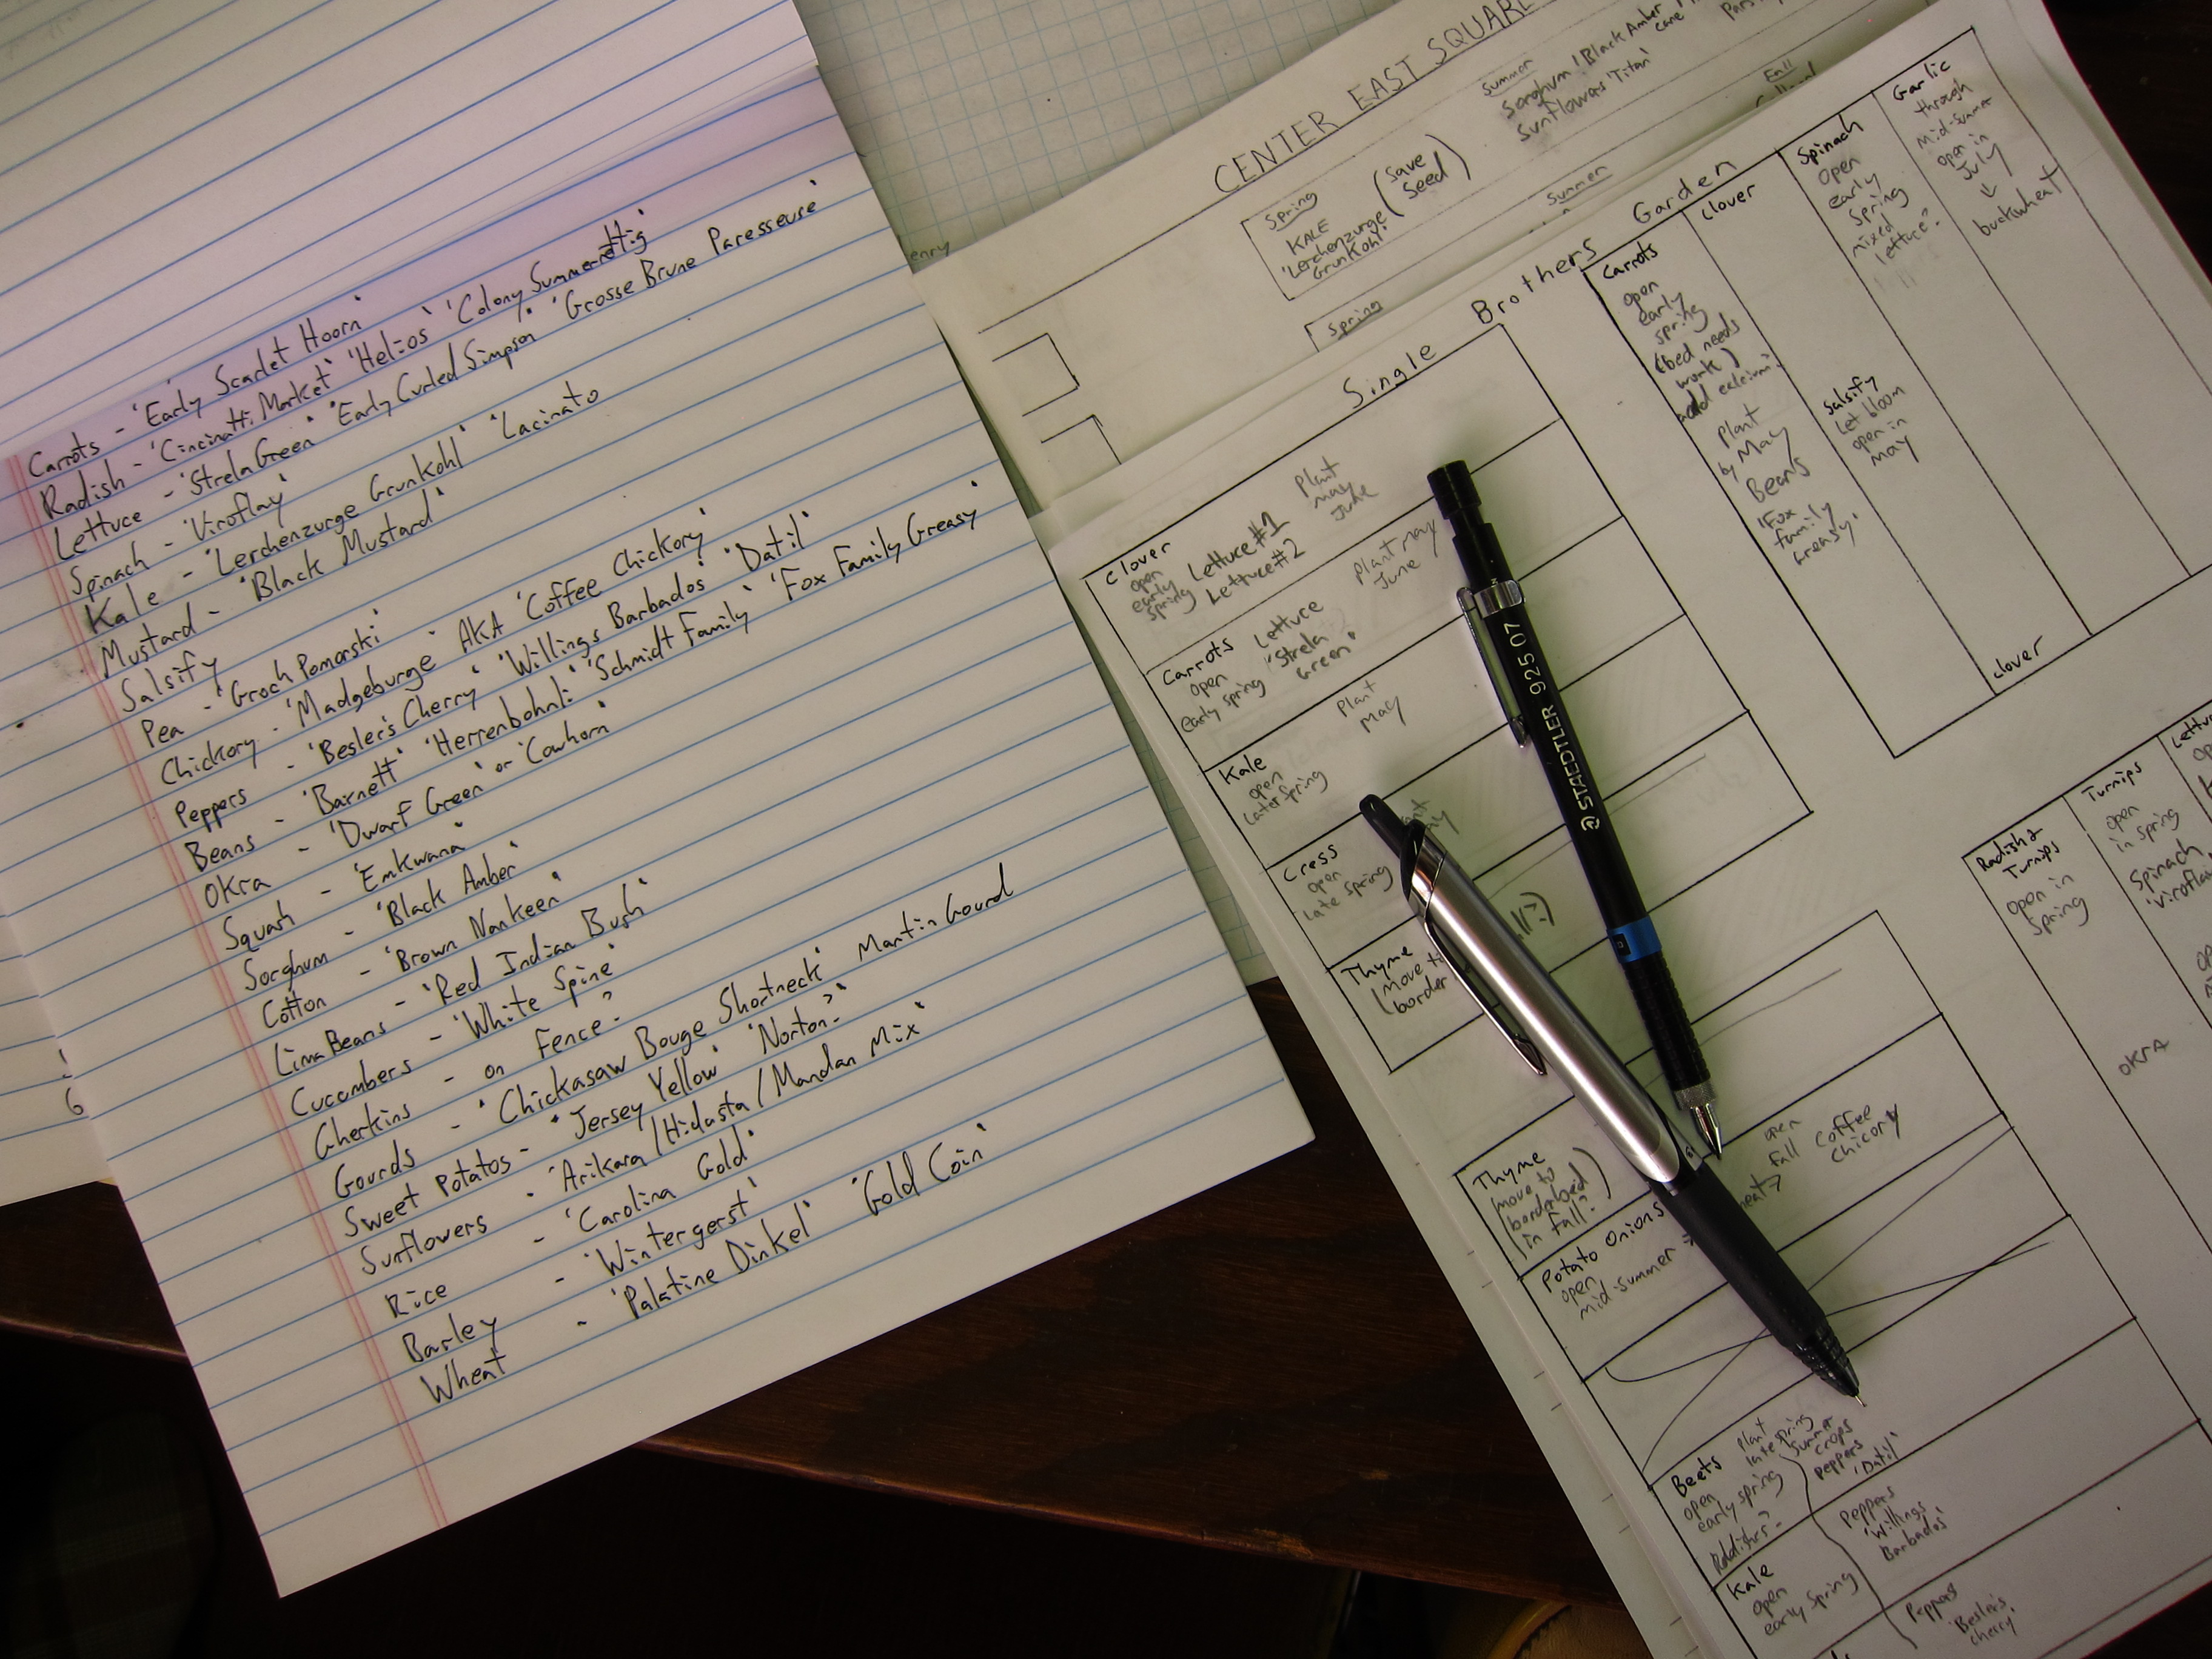 Carrots - 'Early Scarlet Hoorn'
Radish - 'Cincinatti Market' 'Helios' 'Colony Summerettig'
Lettuce - 'Strela Green' 'Early Curled Simpson' 'Grosse Brune Paresseuse'
Spinach - 'Viroflay'
Kale - 'Lerchenzurge Grunkohl' 'Lacinato'
Mustard - 'Black Mustard'
Salsify
Pea - 'Groch Pomorski'
Chickory - 'Madgeburge - AKA 'Coffee Chickory'
Peppers - 'Besler's Cherry' 'Willings Barbados' 'Datil'
Beans - 'Barnett' 'Herrenbohnli' 'Schmidt Family' 'Fox Family Greasy'
OKra - 'Dwarf Green' or 'Cowhorn'
Squash - 'Emkwana'
Sorghum - 'Black Amber'
Cotton - 'Brown Nankeen'
Lima Beans - 'Red Indian Bush'
Cucumbers - 'White Spine'
Gherkins - on Fence?
Gourds - 'Chickasaw Bouge Shortneck' Martin Gourd
Sweet Potatos - 'Jersey Yellow' 'Norton?'
Sunflowers - 'Arikara/Hidasta/Mandan Mix'
Rice - 'Carolina Gold'
Barley - 'Wintergerst'
Wheat - 'Palatine Dinkel' 'Gold Coin'
CENTER EAST SQUARE
Spring
KALE
'Lerchenzurge
GrunKohl'
(Save
Seed)
Summer
Sorghum 'Black Amber'
cane
Sunflowers 'Titan'
Fall
Spring
Summer
Single Brothers Garden
Clover
open
early
spring
Lettuce #1
Lettuce #2
Plant
may
June
Carrots
open
early spring
Lettuce
'Strela
Green'
Plant may
June
Kale
open
later spring
Plant
May
Cress
open
late spring
Thyme
(move to
border
Thyme
(move to
borderbed
in fall?)
Potato Onions
open
mid-summer
open
fall
Coffee
Chicory
Beets
open
early spring
Plant
late spring
Summer
crops
peppers
'Datil'
Kale
open
early spring
Peppers
'Willings
Barbados'
Peppers
'Besler's
Cherry'
Carrots
open
early
spring
(bed needs
work)
add calcium?
Plant
by May
Beans
'Fox
family
Greasy'
Clover
Salsify
Let bloom
open in
may
Spinach
open
early
Spring
mixed
lettuce?
Garlic
through
mid-summer
open in
July
buckwheat
clover
Radish &
Turnips
open in
Spring
Turnips
open
in spring
Spinach
OKRA
STAEDTLER 925 07